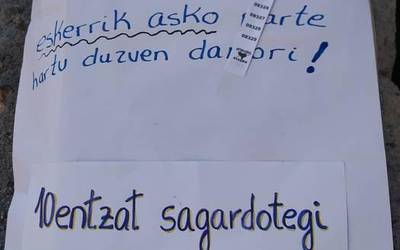 eskerrik asko parte
hartu duzuen danori!
08326
08327
08328
08329
10entzat sagardotegi